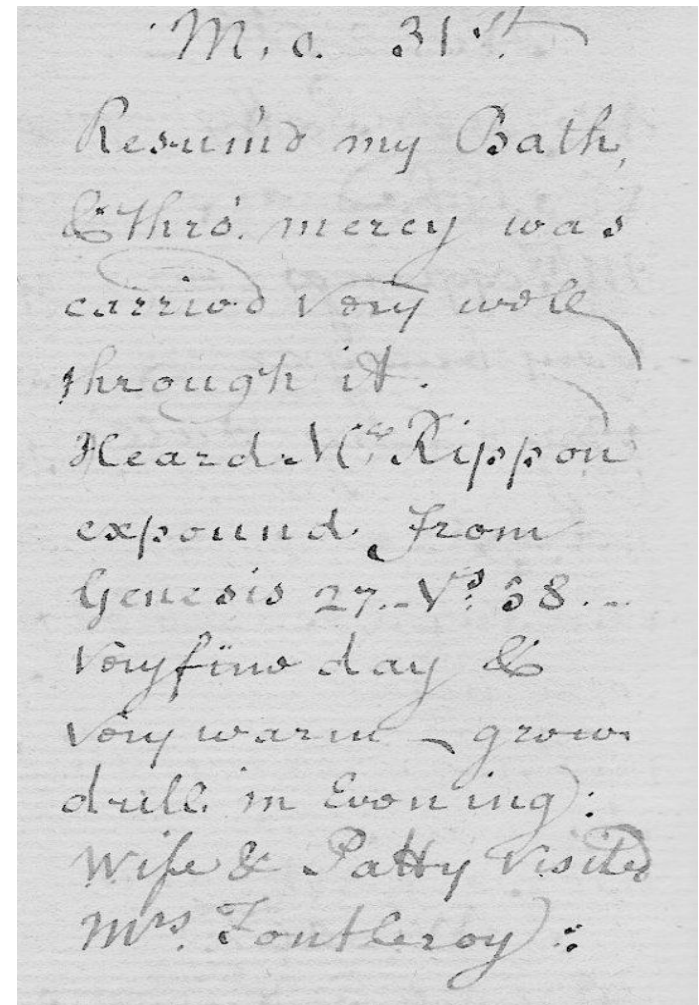 M.o. 31st.
Resum'd my Bath,
& thro' mercy was
carried very well
through it.
Heard Mr. Rippon
expound from
Genesis 27. Vs. 38.
Very fine day &
very warm - grow
dull in Evening:
Wife & Patty visited
Mrs. Fontleroy: